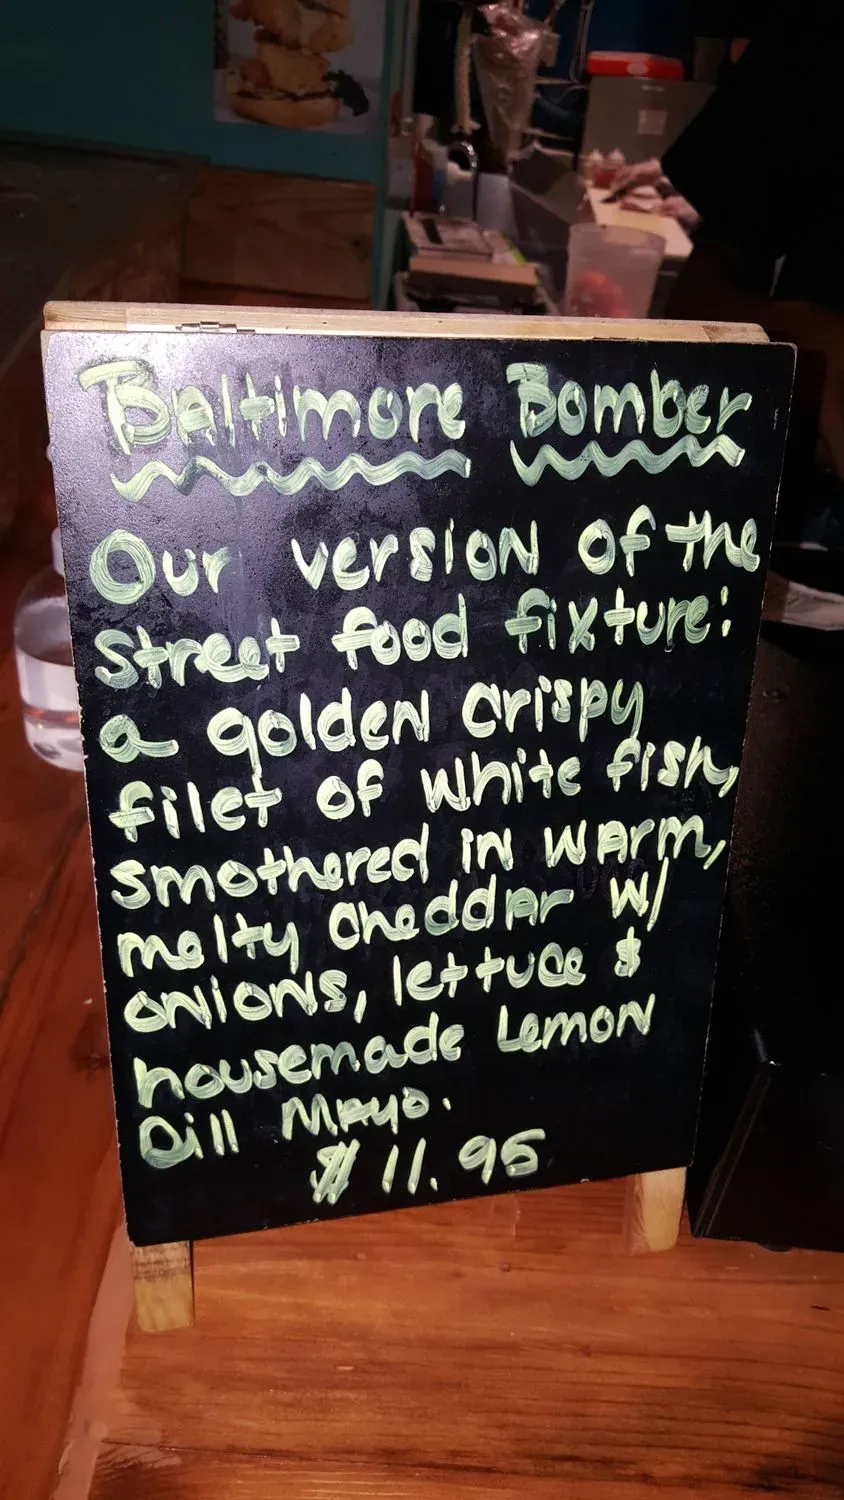 Baltimore Bomber
Our version of the
street food fixture:
a golden crispy
filet of white fish,
smothered in warm,
melty cheddar w/
onions, lettuce &
housemade Lemon
Dill Mayo.
$11.95